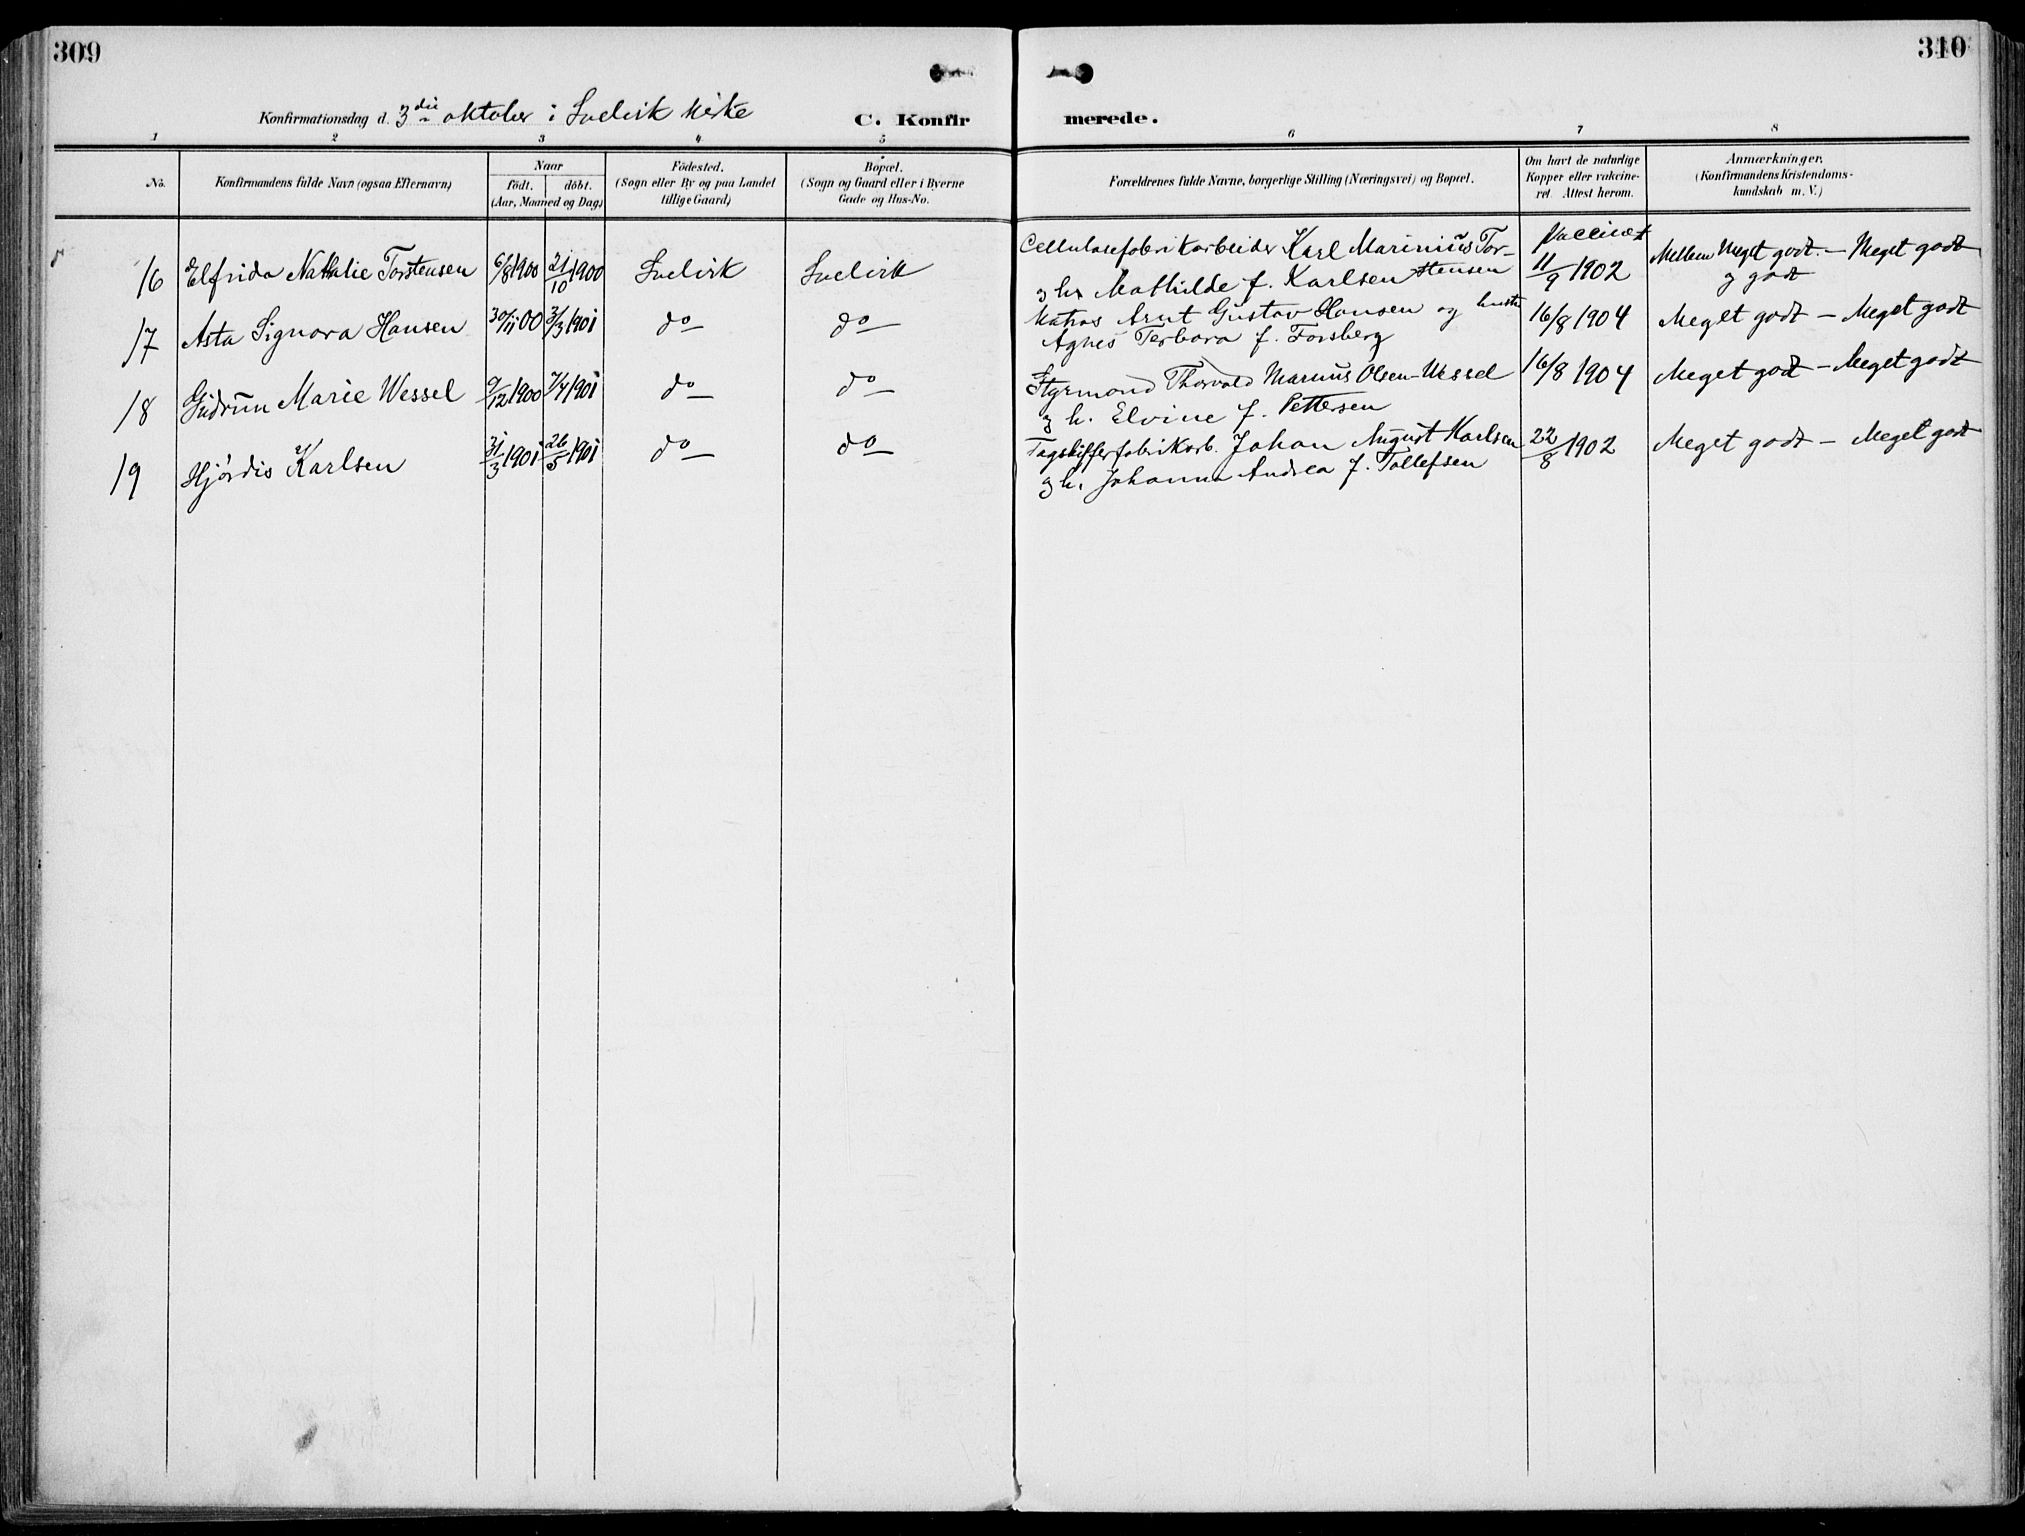 309
310
Konfirmationsdag d. 3die oktober i Svelvik kirke
C. Konfir
merede.
1 2 3 4 5 6 7 8
No.
Konfirmandens fulde Navn (ogsaa Efternavn)
Naar
födt. döbt.
(Aar, Maaned og Dag)
Födested.
(Sogn eller By og paa Landet
tillige Gaard)
Bopæl.
(Sogn og Gaard eller i Byerne
Gade og Hus-No.
Forældrenes fulde Navne, borgerlige Stilling (Næringsvei) og Bopæl.
Om havt de naturlige
Kopper eller vakcine-
ret. Attest herom.
Anmærkninger.
(Konfirmandens Kristendoms-
kundskab m. V.)
16 Elfrida Nathalie Torstensen 6/8 1900 21/10 1900 Svelvik Svelvik Cellulosefabrikarbeider Karl Marinius Tor- Vaccineret
stensen
og h. Mathilde f. Karlsen 11/9 1902 Mellem Meget godt. – Meget godt
og godt
17 Asta Signora Hansen 30/11 00 3/3 1901 do do Matros Arnt Gustav Hansen og hustru 16/8 1904 Meget godt – Meget godt
Agnes Terbora f. Forsberg
18 Gudrun Marie Wessel 9/12 1900 7/4 1901 do do Styrmand Thorvald Marius Olsen-Wessel 16/8 1904 Meget godt – Meget godt
og h. Elvine f. Pettersen
19 Hjördis Karlsen 31/3 1901 26/5 1901 do do Tagskifferfabrikarb. Johan August Karlsen 22/8 1902 Meget godt – Meget godt
og h. Johanna Andrea f. Tollefsen